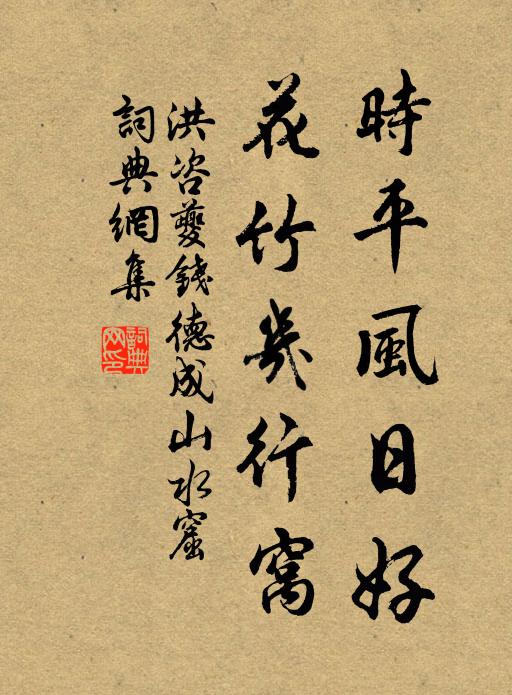 時平風日好
花竹幾行窩
洪咨夔錢德成山水窟
詞典網集
詞典網印